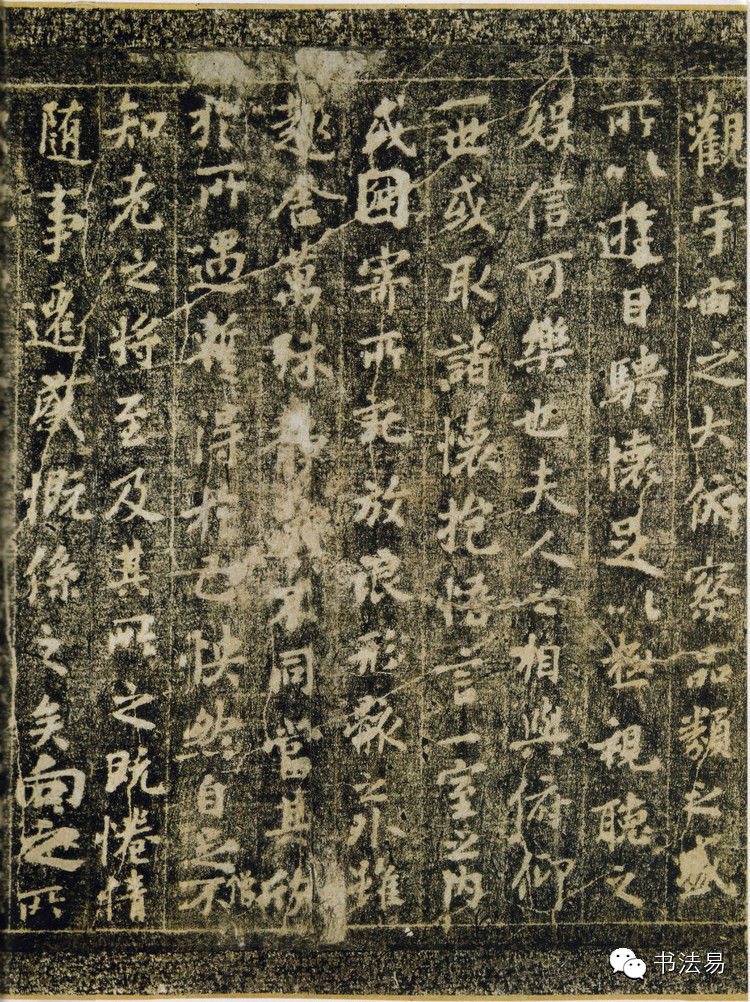 觀宇宙之大俯察品類之盛
所以遊目騁懷足以極視聽之
娛信可樂也夫人之相與俯仰
一世或取諸懷抱悟言一室之內
或因寄所託放浪形骸之外雖
趣舍萬殊靜躁不同當其欣
於所遇暫得於己快然自足不
僧
知老之將至及其所之既惓情
隨事遷感慨係之矣向之所
书法易